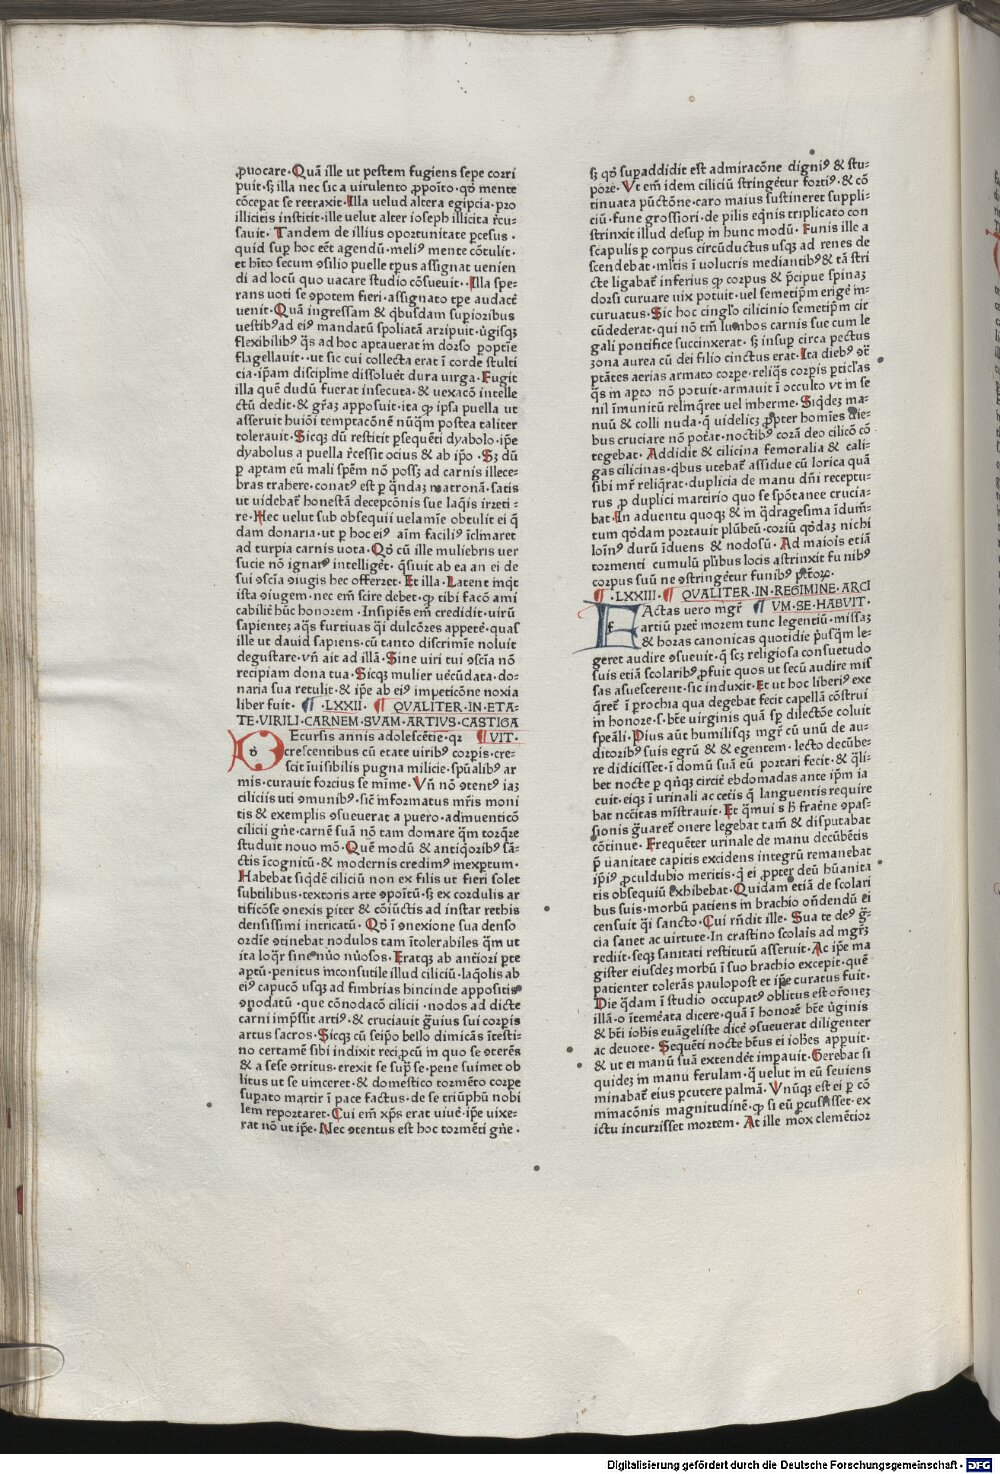 ꝓuocare·Quā ille ut pestem fugiens sepe corri
puit·sꝫ illa nec sic a uirulento ꝓpoīto·qd̄ mente
cōcepat se retraxit·Illa uelud altera egipcia·pro
illicitis institit·ille uelut alter ioseph illicita r̄cu-
sauit·Tandem de illius oportunitate p̄cesus·
quid suꝑ hoc eēt agendū·meliꝰ mente cōtulit·
et hīto secum ꝯsilio puelle tp̄us assignat uenien
di ad locū quo uacare studio cōsueuit··Illa spe-
rans uoti se ꝯpotem fieri·assignato tp̄e audacē
uenit·Quā ingressam & q̄busdam suꝑioribus
uestibꝰ ad eiꝰ mandatū spoliatā arripuit·ūgisqꝫ
flexibilibꝰ q̄s ad hoc aptauerat in dorso ꝓptie
flagellauit··ut sic cui collecta erat ī corde stulti
cia·ip̄am discipline dissoluēt dura uirga·Fugit
illa quē dudū fuerat insecuta·& uexacō intelle
ctū dedit·& gr̄aꝫ apposuit·ita ꝙ ipsa puella ut
asseruit huiōi temptacōne nūq̄m postea taliter
tolerauit·Sicqꝫ dū restitit ꝑsequēti dyabolo·ip̄e
dyabolus a puella r̄cessit ocius & ab ip̄o·Sꝫ dū
ꝑ aptam eū mali spēm nō possꝫ ad carnis illece-
bras trahere·conatꝰ est ꝑ q̄ndaꝫ matronā·satis
ut uidebat᷑ honestā decepcōnis sue laq̄is irreti-
re·Hec uelut sub obsequii uelamīe obtulit ei q̄
dam donaria·ut ꝑ hoc eiꝰ aīm faciliꝰ īclinaret
ad turpia carnis uota·Qd̄ cū ille muliebris uer
sucie nō ignarꝰ intelligēt·q̄siuit ab ea an ei de
sui ꝯscīa ꝯiugis hec offerret·Et illa·Latent inq̄t
ista ꝯiugem·nec em̄ scire debet·ꝙ tibi facō ami
cabilit᷑ hūc honorem·Insipiēs em̄ credidit·uirū
sapienteꝫ aq̄s furtiuas q̄i dulcōres appetē·quas
ille ut dauid sapiens·cū tanto discrimīe noluit
degustare·vn̄ ait ad illā·Sine uiri tui ꝯscīa nō
recipiam dona tua·Sicqꝫ mulier uēcūdata·do-
naria sua retulit·& ip̄e ab eiꝰ impeticōne noxia
liber fuit·¶·LXXII·¶ QVALITER·IN·ETA-
TE·VIRILI·CARNEM·SVAM·ARTIVS·CASTIGA
Ecursis annis adolescētie·qꝛ ¶ VIT·
crescentibus cū etate uiribꝰ corꝑis·cre-
scit īuisibilis pugna milicie·spūalibꝰ ar
mis·curauit forcius se mīme·Vn̄ nō ꝯtentꝰ iaꝫ
ciliciis uti ꝯmunibꝰ·sic̄ informatus mr̄is moni
tis & exemplis ꝯsueuerat a puero·adinuenticō
cilicii gn̄e·carnē suā nō tam domare q̄m torq̄re
studuit nouo mō·Quē modū & antiq̄oribꝰ sā-
ctis īcognitū·& modernis credimꝰ inexptum·
Habebat siqdē ciliciū non ex filis ut fieri solet
subtilibus·textoris arte ꝯpoītū·sꝫ ex cordulis ar
tificōse ꝯnexis ꝑiter & cōiūctis ad instar rethis
densissimi intricatū·Qd̄ ī ꝯnexione sua denso
ordīe ꝯtinebat nodulos tam ītolerabiles q̄m ut
ita loq̄r sine nūo nūosos·Eratqꝫ ab antīori ꝑte
aptū·penitus inconsutile illud ciliciū·laq̄olis ab
eiꝰ capucō usqꝫ ad fimbrias hincinde appositis
ꝯnodatū·que cōnodacō cilicii·nodos ad dicte
carni imp̄ssit artiꝰ·& cruciauit g̈uius sui corꝑis
artus sacros·Sicqꝫ cū seip̄o bello dimicās ītesti-
no certamē sibi indixit reciꝓcū in quo se ꝯterēs
& a sese ꝯtritus·erexit se suꝑ se·pene suimet ob
litus ut se uinceret·& domestico tormēto corpe
suꝑato martir ī pace factus·de se triūphū nobi
lem reportaret·Cui em̄ xp̄s erat uiuē·ip̄e uixe-
rat nō ut ip̄e·Nec ꝯtentus est hoc tormēti gn̄e·
sꝫ qd̄ suꝑaddidit est admiracōne dignīꝰ & stu-
pore·Vt em̄ idem ciliciū stringēt᷑ fortiꝰ·& cō
tinuata pūctōne·caro maius sustineret suppli-
ciū·fune grossiori·de pilis eq̄nis triplicato con
strinxit illud desuꝑ in hunc modū·Funis ille a
scapulis ꝑ corpus circūductus usqꝫ ad renes de
scendebat·mltis ī uolucris mediantibꝰ & tā stri
cte ligabat᷑ inferius ꝙ corpus & p̄cipue spinaꝫ
dorsi curuare uix potuit·uel semetip̄m erigē in-
curuatus·Sic hoc cinglo cilicinio semetip̄m cir
cūdederat·qui nō tm̄ lumbos carnis sue cum le
gali pontifice succinxerat·sꝫ insuꝑ circa pectus
zona aurea cū dei filio cinctus erat·Ita diebꝰ ꝯt᷑
ptātes aerias armato corpe·reliq̄s corꝑis ꝑticlas
q̄s in apto nō potuit·armauit ī occulto vt in se
nil īmunitū relinq̄ret uel inherme·Siqdeꝫ ma-
nuū & colli nuda·q̄ uidelicꝫ ꝓpter homīes die-
bus cruciare nō potāt·noctibꝰ corā deo cilicō cō
tegebat·Addidit & cilicina femoralia & cali-
gas cilicinas·q̄bus utebat᷑ assidue cū lorica quā
sibi mr̄ reliq̄rat·duplicia de manu dn̄i receptu-
rus ꝓ duplici martirio quo se spōtanee crucia-
bat·In aduentu quoqꝫ & in q̄dragesima idum̄-
tum qd̄dam portauit plūbeū·coriū qd̄daꝫ nichi
loīnꝰ durū īduens & nodosū·Ad maiois etiā
tormenti cumulū pl̄ibus locis astrinxit fu nibꝰ
corpus suū ne ꝯstringēt᷑ funibꝰ pc̄torꝝ·
¶·LXXIII·¶ QVALITER·IN·REGIMINE·ARCI
Actas uero mgr̄ ¶ VM·SE·HABVIT·
artiū pret᷑ morem tunc legentiū·missaꝫ
& horas canonicas quotidie p̄usq̄m le-
geret audire ꝯsueuit·q̄ scꝫ religiosa consuetudo
suis etiā scolaribꝰ ꝓfuit quos ut secū audire mis
sas assuescerent·sic induxit·Et ut hoc liberiꝰ exe
q̄rēt᷑ ī ꝓrochia qua degebat fecit capellā cōstrui
in honore·s·bt̄e uirginis quā sꝑ dilectōe coluit
speāli·Pius aūt humilisqꝫ mgr̄ cū unū de au-
ditoribꝰ suis egrū & & egentem·lecto decūbe-
re didicisset·ī domū suā eū portari fecit·& q̄li-
bet nocte ꝑ qn̄qꝫ circit᷑ ebdomadas ante ip̄m ia
cuit·eiqꝫ ī urinali ac cet̄is q̄ languentis require
bat nc̄citas mīstrauit·Et q̄mui s h̄ frat̄ne ꝯpas-
sionis g̈uaret᷑ onere legebat tam̄ & disputabat
cōtinue·Frequēter urinale de manu decūbētis
p̄ uanitate capitis excidens integrū remanebat
ip̄iꝰ ꝓculdubio meritis·q̄ ei ꝓpter deū hūanita
tis obsequiū exhibebat·Quidam etiā de scolari
bus suis·morbū patiens in brachio on̄dendū ei
censuit q̄i sancto·Cui rn̄dit ille·Sua te deꝰ g̈-
cia sanet ac virtute·In crastino scolais ad mgr̄ꝫ
rediit·seqꝫ sanitati restitutū asseruit·Ac ip̄e ma
gister eiusdeꝫ morbū ī suo brachio excepit·quē
patienter tolerās paulopost et ip̄e curatus fuit·
Die q̄dam ī studio occupatꝰ oblitus est or̄oneꝫ
illā·o īteme̅ata dicere·quā ī honorē bt̄e ūginis
& bt̄i ioh̄is euāgeliste dicē ꝯsueuerat diligenter
ac deuote·Sequēti nocte bt̄us ei ioh̄es appuit·
& ut ei manū suā extendēt imꝑauit·Gerebat si
quideꝫ in manu ferulam·q̄ uelut in eū seuiens
minabat᷑ eius ꝑcutere palmā·Vnūqꝫ est ei ꝑ cō
minacōnis magnitudinē·ꝙ si eū ꝑcussisset·ex
ictu incurrisset mortem·At ille mox clemētior
Digitalisierung gefördert durch die Deutsche Forschungsgemeinschaft - DFG